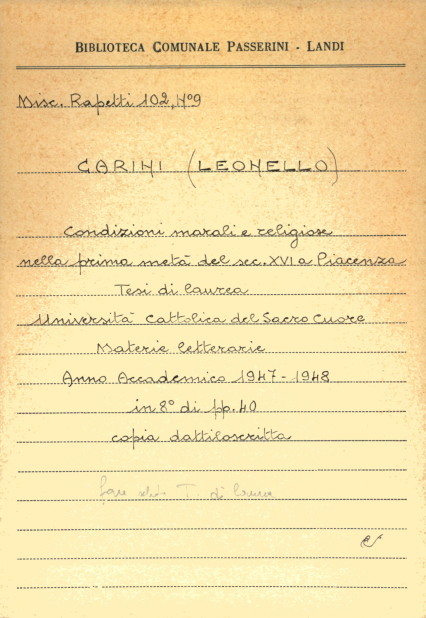 BIBLIOTECA COMUNALE PASSERINI - LANDI
Misc. Rapetti 102, N°9
GARINI (LEONELLO)
Condizioni morali e religiose
nella prima metà del sec. XVI a Piacenza
Tesi di laurea
Università Cattolica del Sacro Cuore
Materie letterarie
Anno Accademico 1947-1948
in 8° di pp. 40
copia dattiloscritta
T. di laurea